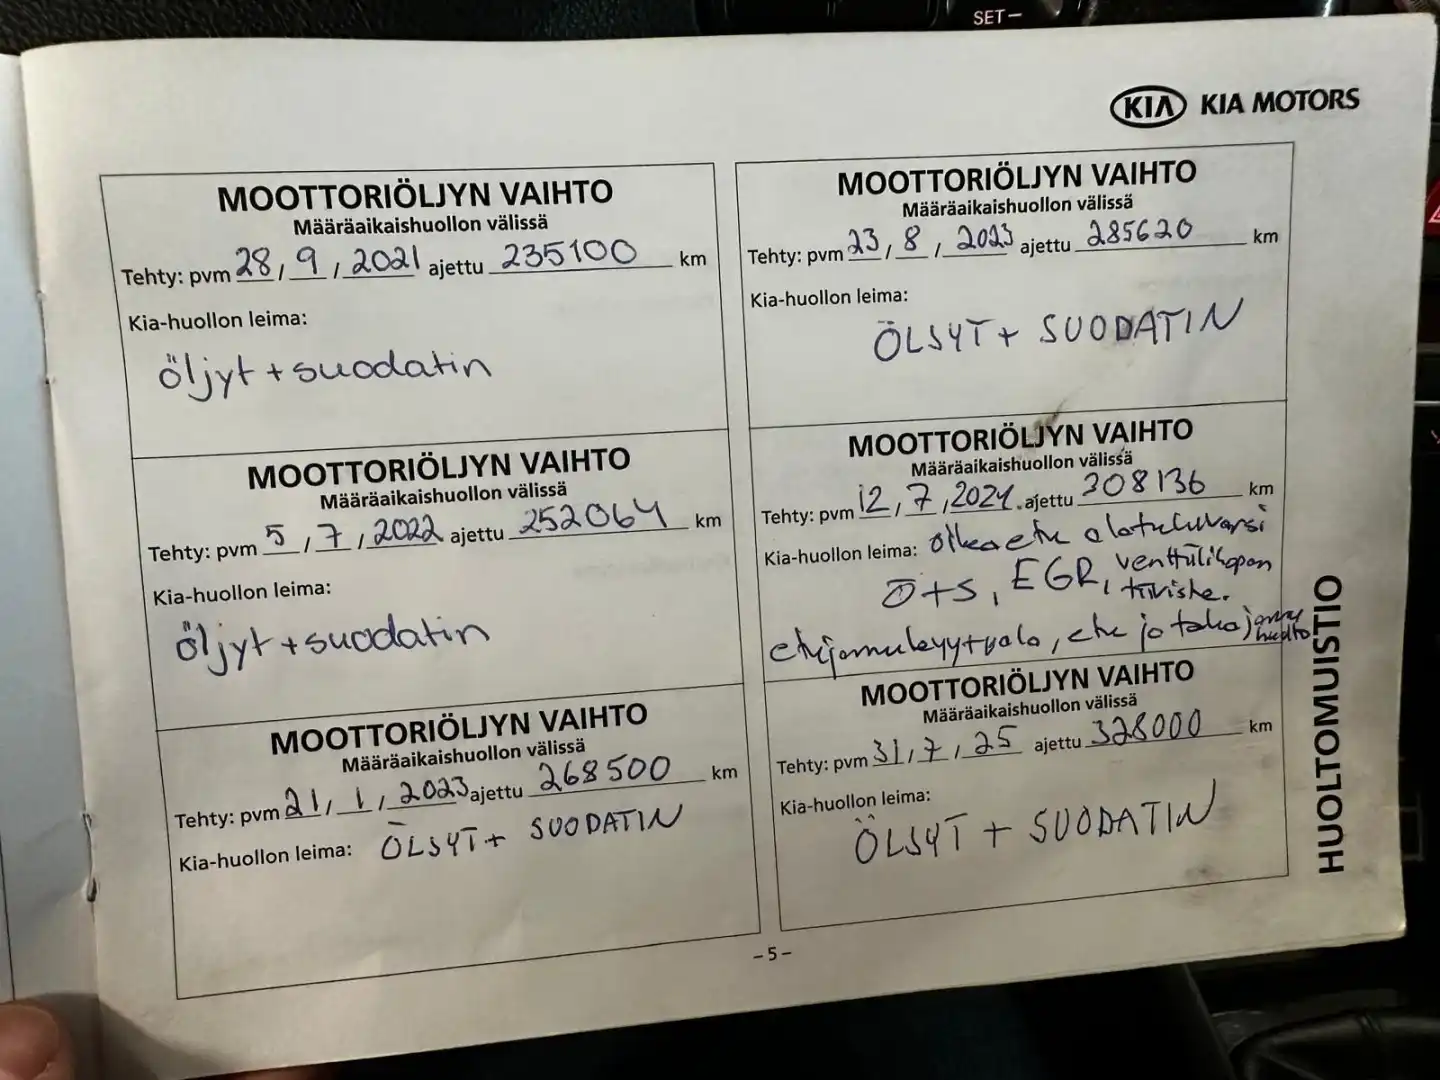 SET–
KIA KIA MOTORS
MOOTTORIÖLJYN VAIHTO
Määräaikaishuollon välissä
Tehty: pvm 28, 9, 2021 ajettu 235100 km
Kia-huollon leima:
öljyt + suodatin
MOOTTORIÖLJYN VAIHTO
Määräaikaishuollon välissä
Tehty: pvm 5, 7, 2022 ajettu 252064 km
Kia-huollon leima:
öljyt + suodatin
MOOTTORIÖLJYN VAIHTO
Määräaikaishuollon välissä
Tehty: pvm 21, 1, 2023 ajettu 268500 km
Kia-huollon leima: ÖLJYT + SUODATIN
MOOTTORIÖLJYN VAIHTO
Määräaikaishuollon välissä
Tehty: pvm 23, 8, 2023 ajettu 285620 km
Kia-huollon leima:
ÖLJYT + SUODATIN
MOOTTORIÖLJYN VAIHTO
Määräaikaishuollon välissä
Tehty: pvm 12, 7, 2024. ajettu 308136 km
Kia-huollon leima: oikea etu alatukivarsi
Ö+S, EGR, venttiilikopan
tiiviste.
etujarrulevyt+pala, etu ja takajarru
huolto
MOOTTORIÖLJYN VAIHTO
Määräaikaishuollon välissä
Tehty: pvm 31, 7, 25 ajettu 328000 km
Kia-huollon leima:
ÖLJYT + SUODATIN
HUOLTOMUISTIO
– 5 –